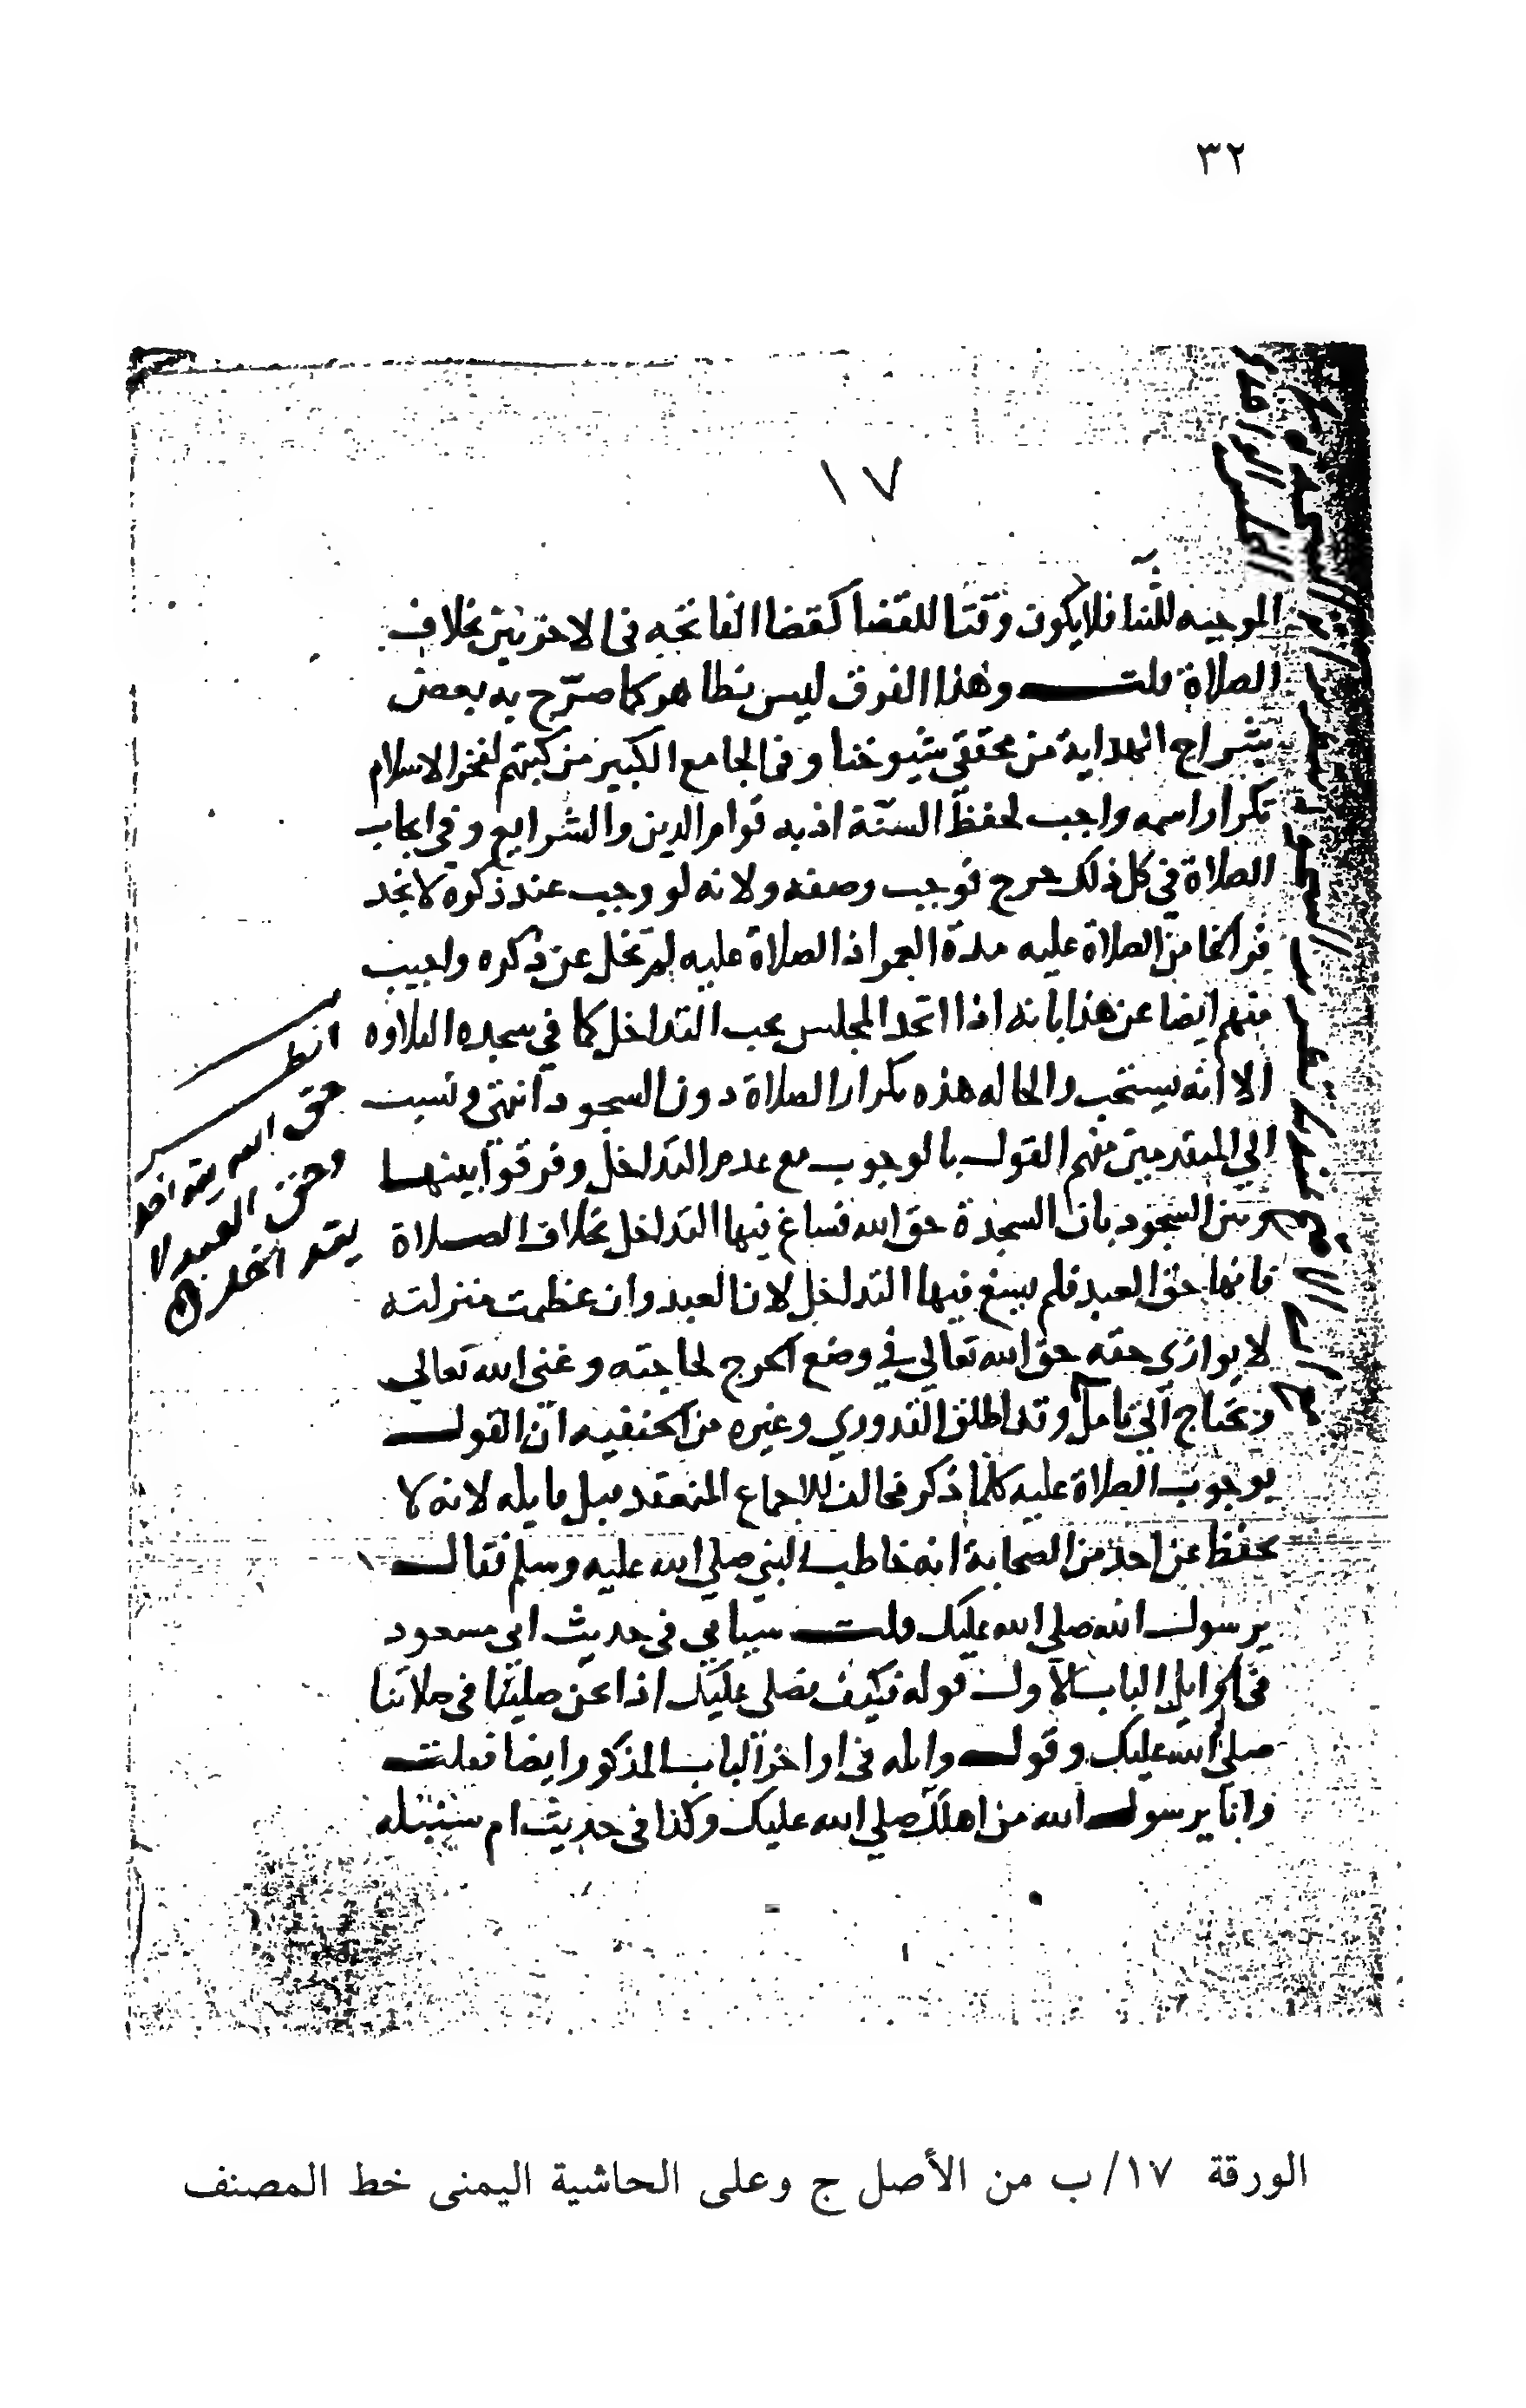 ٣٢
١٧
الموجبه للثنا فلا يكون وقتا للقضا كقضا الفاتحه فى الاخرتين بخلاف
الصلاة قلت وهذا الفرق ليس بظاهر كما صرّح به بعض
شراح الهداية من محققى شيوخنا وفى الجامع الكبير من كتبهم لفخر الاسلام
تكرار اسمه واجب لحفظ السنّة اذ به قوام الدين والشرايع وفي ايجاب
الصلاة في كل ذلك حرج فوجب وضعه ولانه لو وجب عند ذكره لا نجد
فراغا من الصلاة عليه مدة العمر اذ الصلاة عليه لم تخل عن ذكره واجيب
منهم ايضا عن هذا بانه اذا اتحد المجلس يجب التداخل كما في سجده التلاوه
الا انه يستحب والحاله هذه تكرار الصلاة دون السجود انتهى ونسب
الي المتقدمين منهم القول بالوجوب مع عدم التداخل وفرقوا بينها
وبين السجود بان السجدة حق الله فساغ فيها التداخل بخلاف الصلاة
فانها حق العبد فلم يسغ فيها التداخل لان العبد وان عظمت منزلته
لا يوازي حقه حق الله تعالي في وضع الحرج لحاجته وغنى الله تعالي
ويحتاج الى تامل وقد اطلق القدوري وغيره من الحنفيه ان القول
بوجوب الصلاة عليه كلما ذكر مخالف للاجماع المنعقد قبل قايله لانه لا
يحفظ عن احد من الصحابة انه خاطب النبي صلي الله عليه وسلم فقال
يرسول الله صلي الله عليك قلت سياتي في حديث ابي مسعود
فى اوايل الباب الاول قوله فكيف نصلي عليك اذا نحن صلينا في صلاتنا
صلى الله عليك وقول واثله فى اواخر الباب المذكور ايضا فقلت
وانا يرسول الله من اهلك صلي الله عليك وكذا فى حديث ام سنبله
انظر
حق الله يتداخل
وحق العبد لا
يتداخل
الورقة ١٧/ب من الأصل ج وعلى الحاشية اليمنى خط المصنف